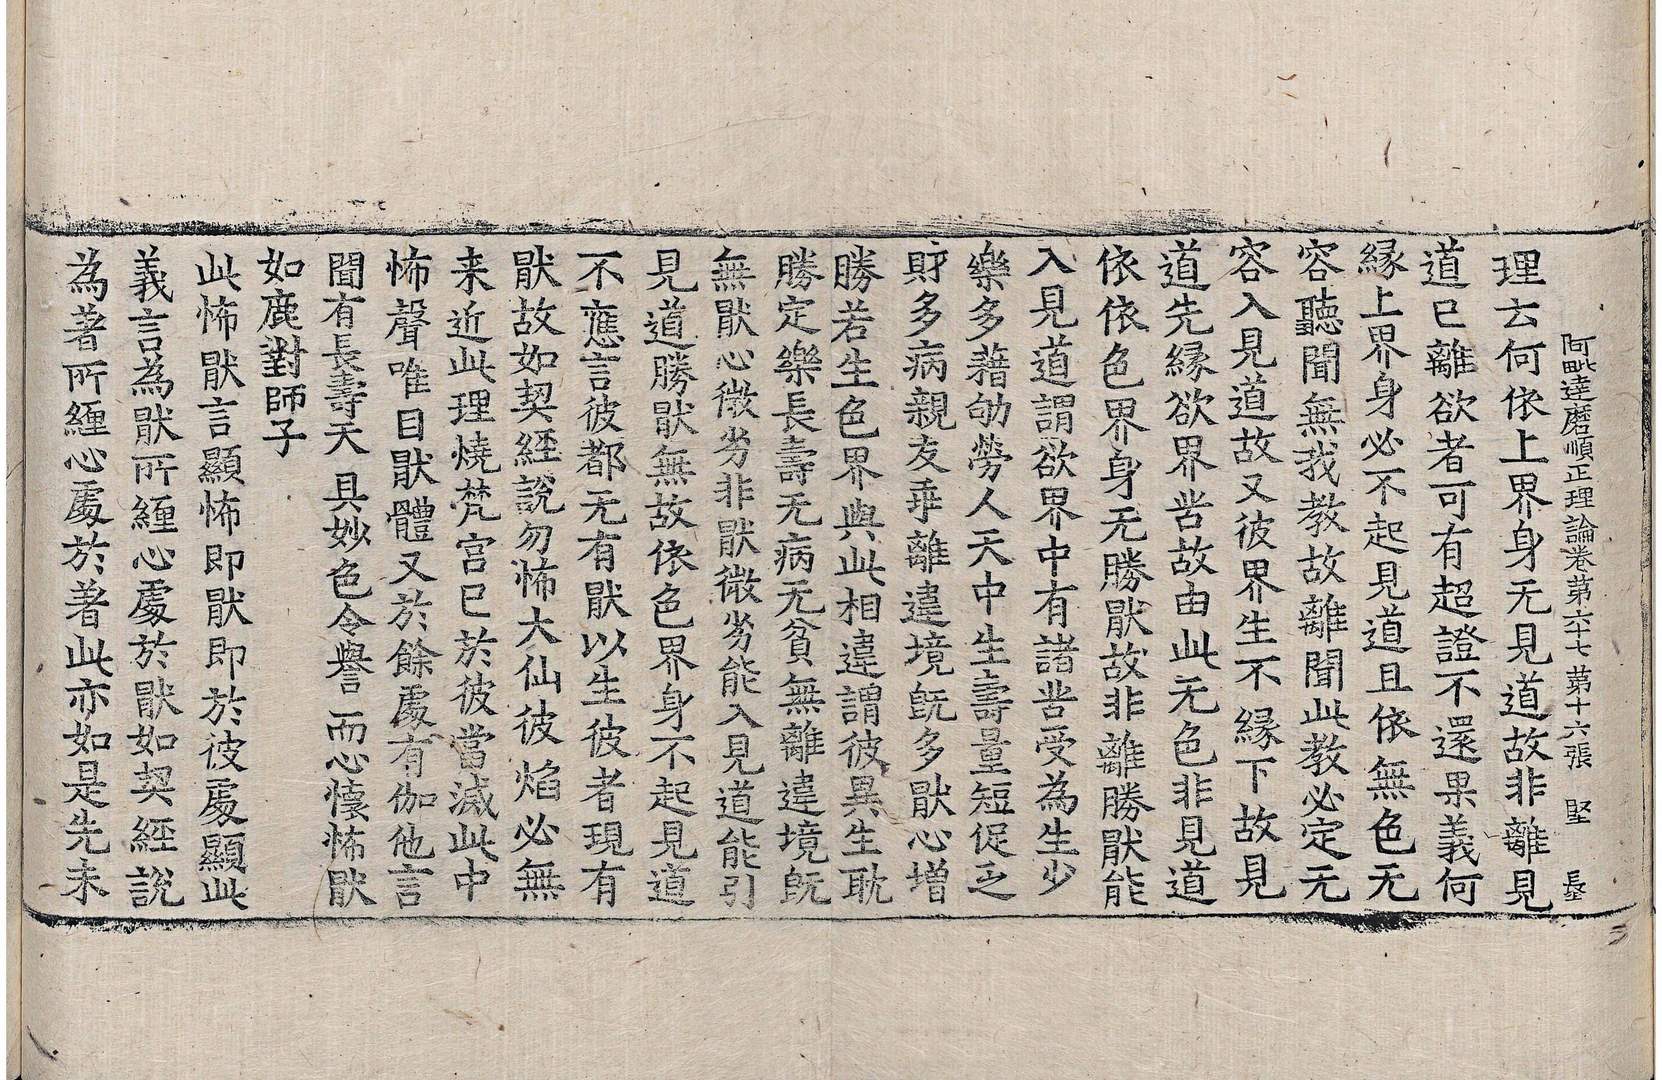 阿毗達磨順正理論卷第六十七 第十六張 堅
理云何依上界身无見道故非離見
道已離欲者可有超證不還果義何
緣上界身必不起見道且依無色无
容聽聞無我教故離聞此教必定无
容入見道故又彼界生不緣下故見
道先緣欲界苦故由此无色非見道
依依色界身无勝猒故非離勝猒能
入見道謂欲界中有諸苦受為生少
樂多藉劬勞人天中生壽量短促乏
財多病親友乖離違境既多猒心增
勝若生色界與此相違謂彼異生耽
勝定樂長壽无病无貧無離違境既
無猒心微劣非猒微劣能入見道能引
見道勝猒無故依色界身不起見道
不應言彼都无有猒以生彼者現有
猒故如契經說勿怖大仙彼焰必無
来近此理燒梵宫已於彼當滅此中
怖聲唯目猒體又於餘處有伽他言
聞有長壽天 具妙色令譽 而心懐怖猒
如鹿對師子
此怖猒言顯怖即猒即於彼處顯此
義言為猒所纏心處於猒如契經說
為著所纏心處於著此亦如是先未